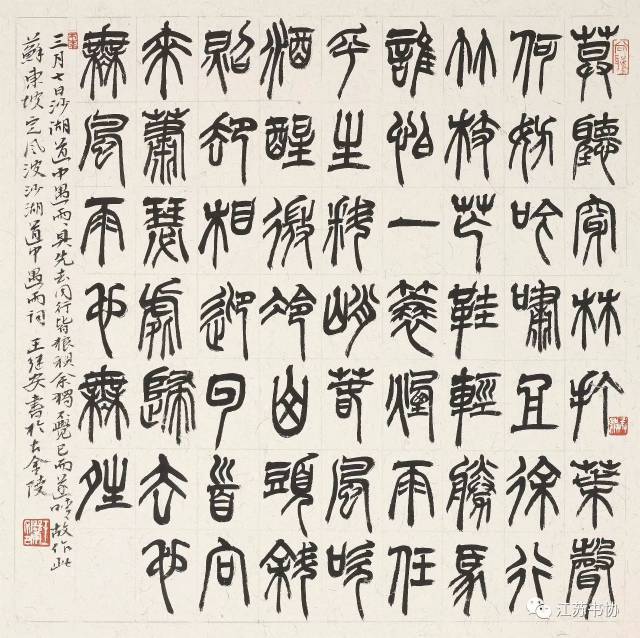 莫聽穿林打葉聲
何妨吟嘯且徐行
竹杖芒鞋輕勝馬
誰怕一蓑煙雨任
平生料峭春風吹
酒醒微冷山頭斜
照卻相迎回首向
來蕭瑟處歸去也
無風雨也無晴
三月七日沙湖道中遇雨具先去同行皆狼狽余獨不覺已而遂晴故作此
蘇東坡定風波沙湖道中遇雨詞 王继安書於古金陵
江苏书协